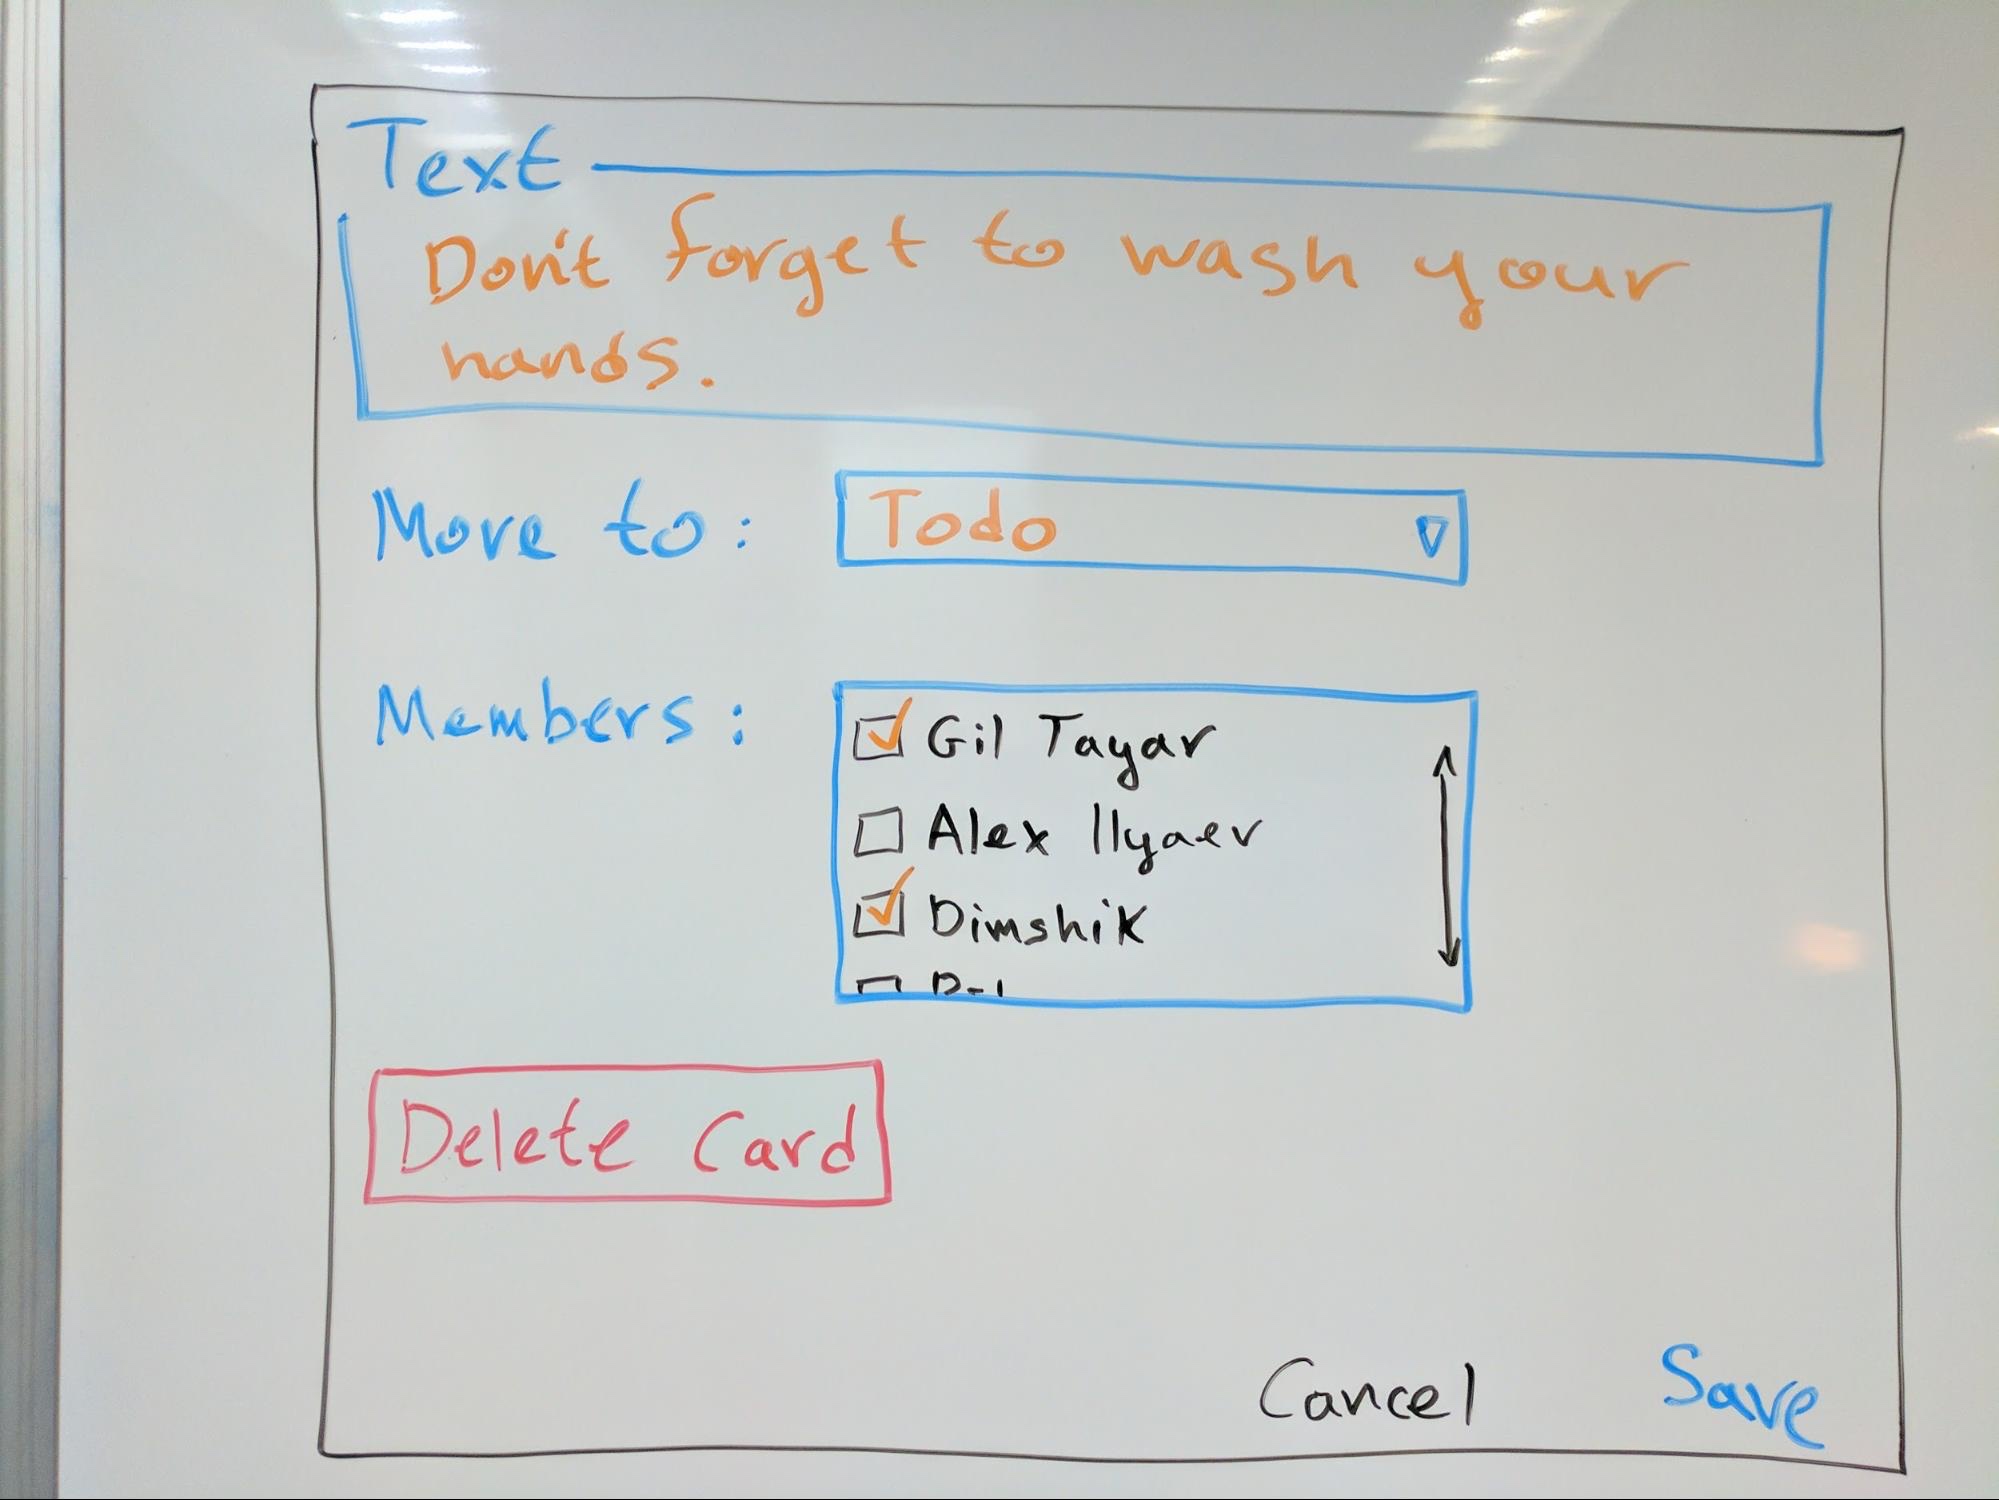 Text
Don't forget to wash your
hands.
Move to: Todo
Members:
Gil Tayar
Alex Ilyaev
Dimshik
Delete Card
Cancel Save